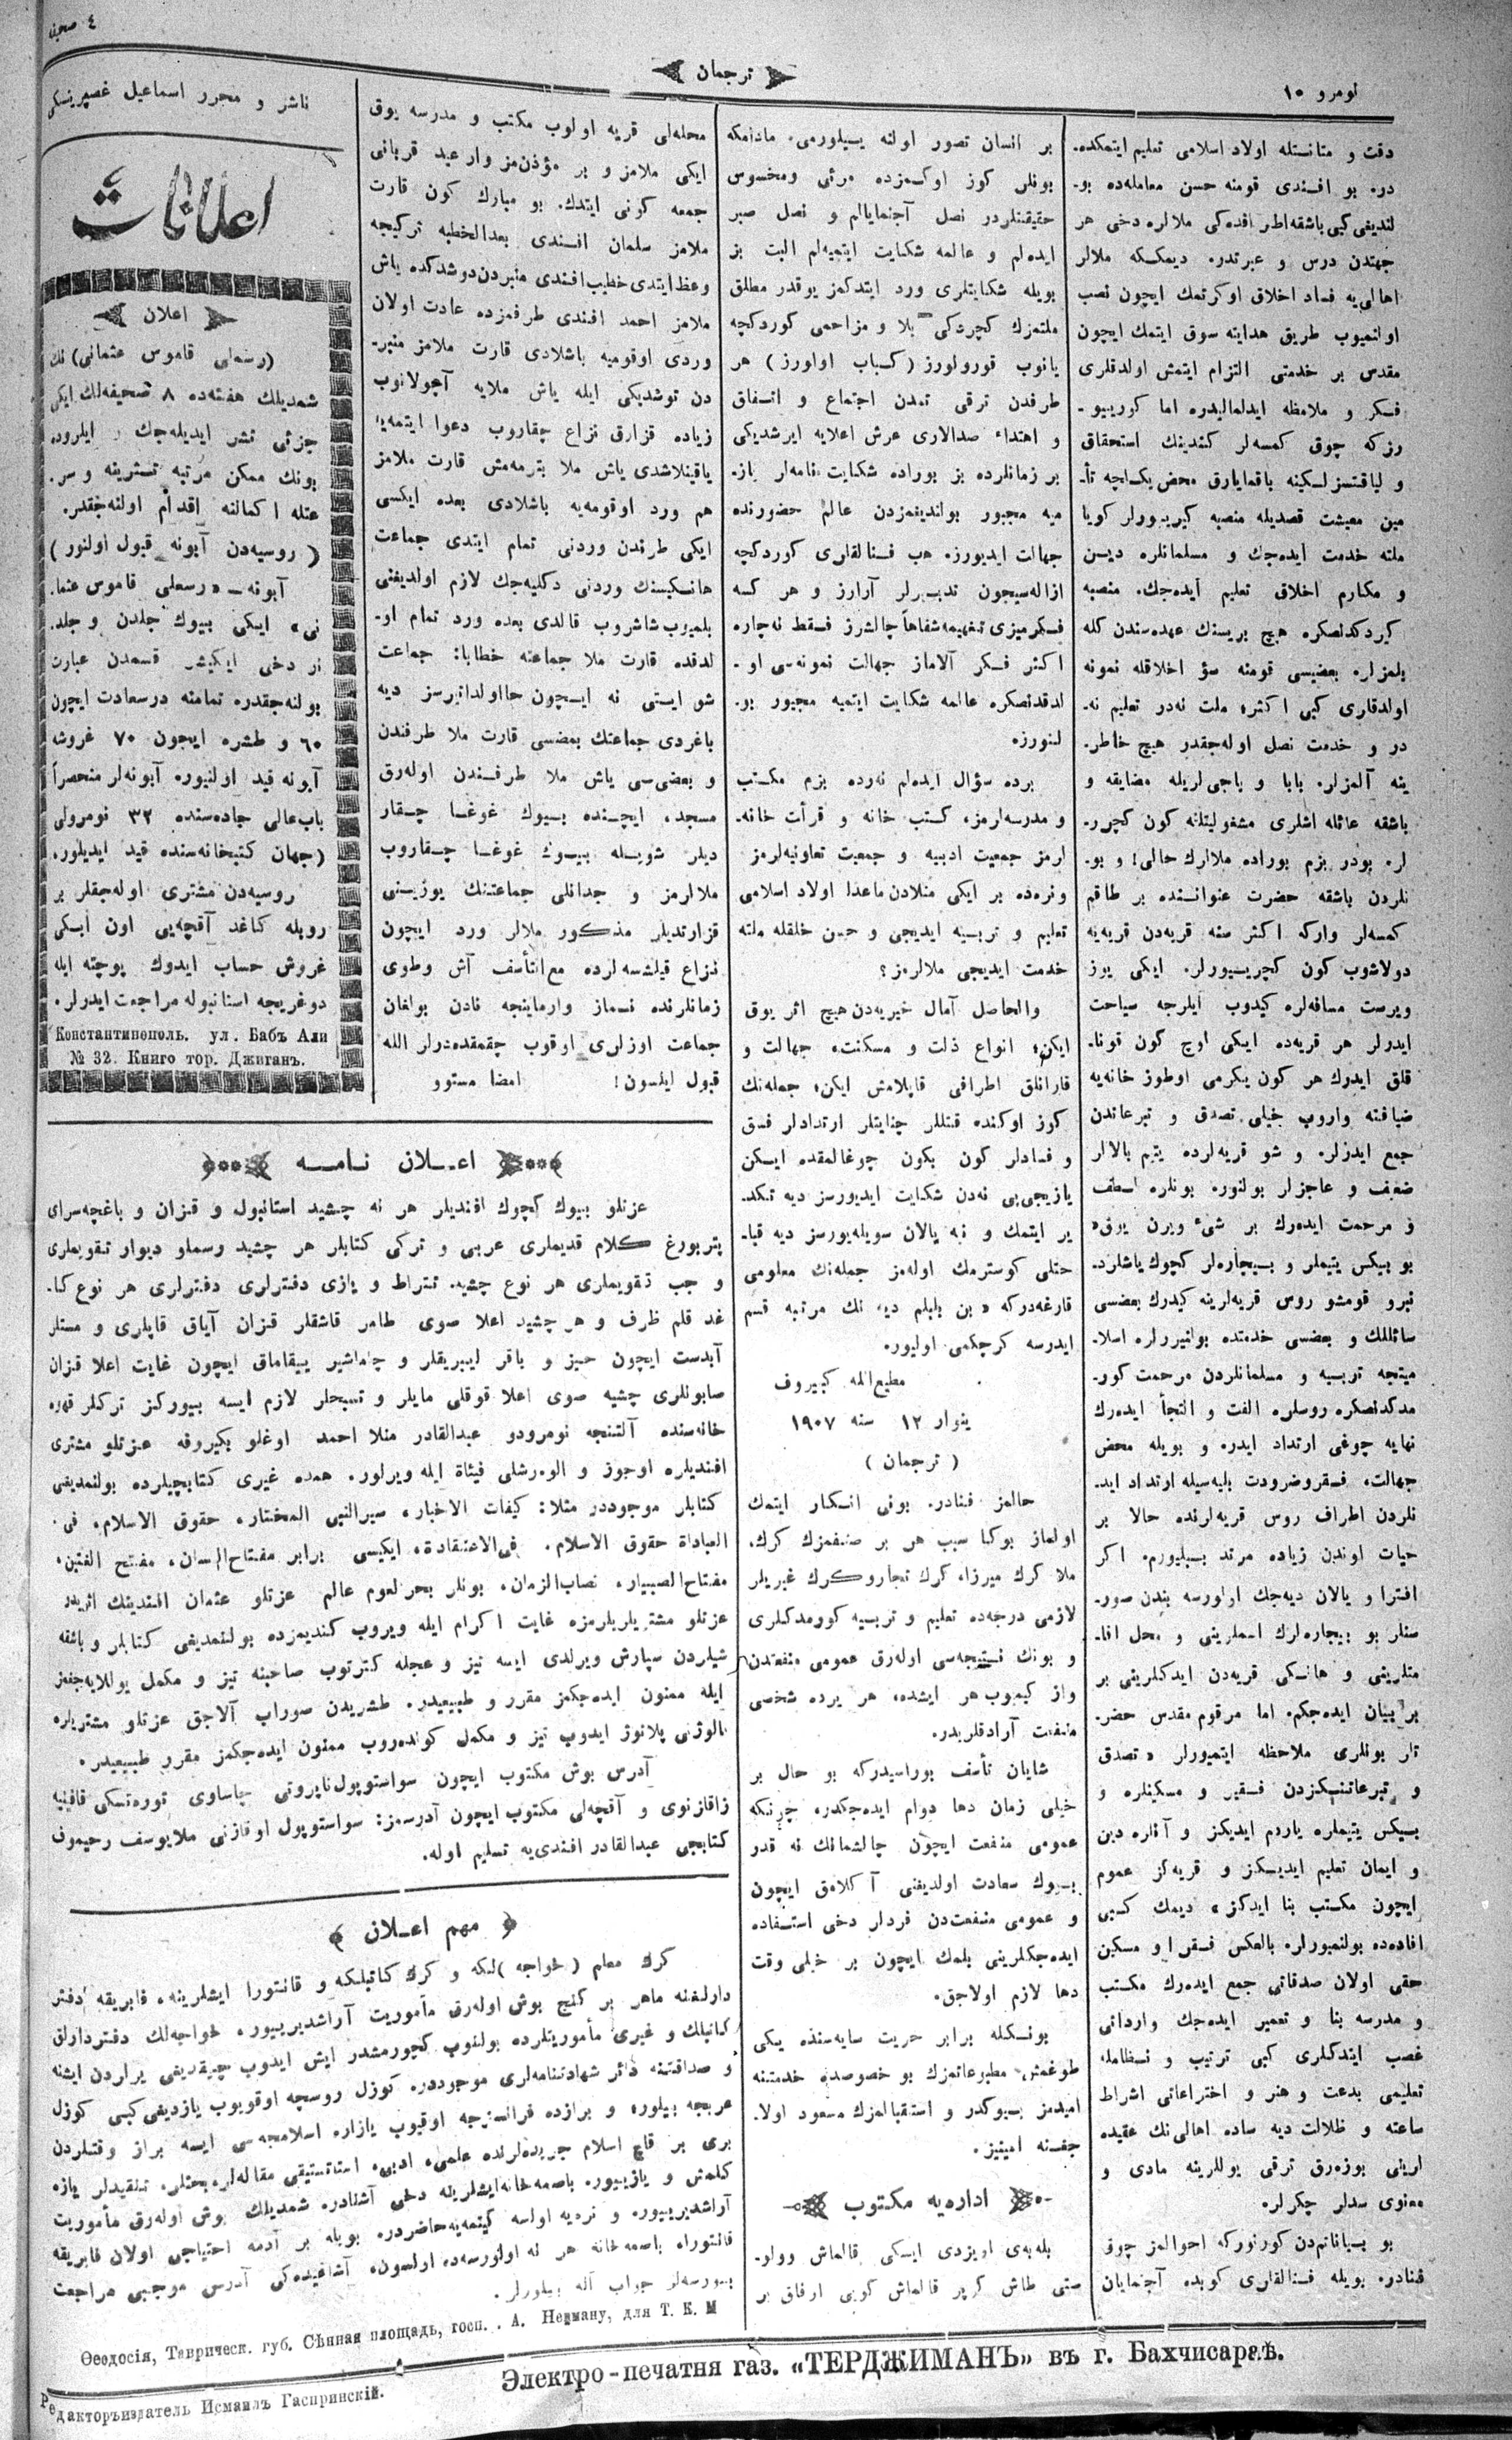 نومرو ١٠
ترجمان
٤ صحيفه
دقت و متانتله اولاد اسلامى تعليم ايتمكده-
در. بو افندى قومنه حسن معامله‌ده بو-
لنديغى كبى باشقه اطرافده‌كى ملالره دخى هر
جهتدن درس و عبرتدر. ديمككه ملالر
اهالى‌يه فساد اخلاق اوكرتمك ايچون نصب
اولنميوب طريق هدايته سوق ايتمك ايچون
مقدس بر خدمتى التزام ايتمش اولدقلرى
فكر و ملاحظه ايدلماليدر. اما كورييو-
رزكه چوق كمسه‌لر كندينك استحقاق
ملته خدمت ايده‌جك و مسلمانلره دين
و مكارم اخلاق تعليم ايده‌جك. منصبه
كيردكدنصكره هيچ بريسنك عهده‌سندن كله
بلمزلر. بعضيسى قومنه سؤ اخلاقله نمونه
در و خدمت نصل اوله‌جقدر هيچ خاطر-
ينه آلمزلر. بابا و باجى‌لريله مضايقه و
باشقه عائله اشلرى مشغوليتلنه كون كچرر-
لر. بودر بزم بوراده ملالرك حالى! و بو-
نلردن باشقه حضرت عنواننده بر طاقم
كمسه‌لر واركه اكثر سنه قريه‌دن قريه‌يه
دولاشوب كون كچرييورلر. ايكى يوز
ويرست مسافه‌لره كيدوب آيلرجه سياحت
ايدرلر هر قريه‌ده ايكى اوچ كون قونا-
قلق ايدرك هر كون يكرمى اوطوز خانه‌يه
ضيافته واروب خيلى تصدق و تبرعاتدن
جمع ايدرلر. و شو قريه‌لرده يتيم بالالر
ضعيف و عاجزلر بولنور. بونلره لطف
و مرحمت ايده‌رك بر شىء ويرن يوق.
بو بيكس يتيملر و بيچاره‌لر كچوك ياشلرد-
نبرو قومشو روس قريه‌لرينه كيدرك بعضسى
سائللك و بعضسى خدمتده بولنييرلر. اسلا-
ميتجه تربيه و مسلمانلردن مرحمت كور-
مدكدنصكره روسلره الفت و التجأ ايده‌رك
نهايه چوغى ارتداد ايدر. و بويله محض
جهالت، فقروضرورت بليه‌سيله ارتداد ايد-
نلردن اطراف روس قريه‌لرنده حالا بر
حيات اوندن زياده مرتد بيليورم. اكر
افترا و يالان ديه‌جك اولورسه بندن صور-
سنلر بو بيچاره‌لرك اسملرينى و محل اقا-
متلرينى و هانكى قريه‌دن ايدكلرينى بر
بر بيان ايده‌جكم. اما مرقوم مقدس حضر-
تلر بونلرى ملاحظه ايتميورلر «تصدق
و تبرعاتنكزدن فقير و مسكينلره و
بيكس يتيملره ياردم ايديكز و آنلره دين
و ايمان تعليم ايديكز و قريه‌كز عموم
ايچون مكتب بنا ايدكز» ديمك كبى
افاده‌ده بولنميورلر. بالعكس فقرا و مسكين
حقى اولان صدقاتى جمع ايده‌رك مكتب
و مدرسه بنا و تعمير ايده‌جك وارداتى
غصب ايتدكلرى كبى ترتيب و نظامله
تعليمى بدعت و هنر و اختراعاتى اشراط
ساعته و ظلالت ديه ساده اهالى‌نك عقيده
لرينى بوزه‌رق ترقى يوللرينه مادى و
معنوى سدلر چكرلر.
بو بياناتمدن كورنوركه احوالمز چوق
فنادر. بويله فنالقلرى كوبده آچنمايان
بر انسان تصور اولنه بيلورمى. مادامكه
بونلر كوز اوكمزده مرئى ومحسوس
حقيقتلردر نصل آچنمايالم و نصل صبر
ايده‌لم و عالمه شكايت ايتميه‌لم البت بز
بويله شكايتلرى ورد ايتدكمز يوقدر مطلق
ملتمزك كچردكى بلا و مزاحمى كوردكچه
يانوب قورولورز (كباب اولورز) هر
طرفدن ترقى تمدن اجتماع و اتفاق
و اهتداء صدالارى عرش اعلايه ايرشديكى
بر زمانلرده بز بوراده شكايتنامه‌لر ياز-
ميه مجبور بولنديغمزدن عالم حضورنده
جهالت ايديورز. هب فنالقلرى كوردكچه
ازاله‌سيچون تدبيرلر آرارز و هر كسه
فكرميزى تفهيمه شفاهاً چالشرز فقط نه‌چاره
اكثر فكر آلاماز جهالت نمونه‌سى او-
لدقدنصكره عالمه شكايت ايتميه مجبور بو-
لنورز.
برده سؤال ايده‌لم نه‌رده بزم مكتب
و مدرسه‌لرمز، كتب خانه و قرأت خانه-
لرمز جمعيت ادبيه و جمعيت تعاونيه‌لرمز
ونره‌ده بر ايكى منلادن ماعدا اولاد اسلامى
تعليم و تربيه ايديجى و حسن خلقله ملته
خدمت ايديجى ملالرمز؟
والحاصل آمال خيريه‌دن هيچ اثر يوق
ايكن؛ انواع ذلت و مسكنت، جهالت و
قارانلق اطرافى قاپلامش ايكن؛ جمله‌نك
كوز اوكنده قتللر جنايتلر ارتدادلر فسق
و فسادلر كون بكون چوغالمقده ايكن
يازيجى‌يى نه‌دن شكايت ايديورسز ديه تكد-
ير ايتمك و نه يالان سويله‌يورسز ديه قبا-
حتلى كوسترمك اولمز جمله‌نك معلومى
قارغه‌دركه «بن بلبلم ديه» نك مرتبه قسم
ايدرسه كرچكمى اوليور.
مطيع‌الله كبيروف
ينوار ١٢ سنه ١٩٠٧
(ترجمان)
حالمز فنادر. بونى انكار ايتمك
اولماز بوكا سبب هر بر صنفمزك كرك
ملا كرك ميرزا، كرك تجار وكرك غيريلر
لازمى درجه‌ده تعليم و تربيه كورمدكلرى
و بونك نتيجه‌سى اوله‌رق عمومى منفعتدن
واز كچوب هر ايشده، هر يرده شخصى
منفعت آرادقلريدر.
شايان تأسف بوراسيدركه بو حال بر
خيلى زمان دها دوام ايده‌جكدر، چونكه
عمومى منفعت ايچون چالشمانك نه قدر
بيوك سعادت اولديغنى آكلامق ايچون
و عمومى منفعت‌دن فردلر دخى استفاده
ايده‌جكلرينى بلمك ايچون بر خيلى وقت
دها لازم اولاجق.
بونكله برابر حريت سايه‌سنده يكى
طوغمش مطبوعاتمزك بو خصوصده خدمتنه
اميدمز بيوكدر و استقبالمزك مسعود اولا-
جغنه امينيز.
اداره‌يه مكتوب
بله‌به‌ى اويزدى ايسكى قالماش وولو-
ستى طاش كوپر قالماش كويى ارفاق بر
محله‌لى قريه اولوب مكتب و مدرسه يوق
ايكى ملامز و بر مؤذن‌مز وار عيد قربانى
جمعه كونى ايتدك. بو مبارك كون قارت
ملامز سلمان افندى بعدالخطبه تركيجه
وعظ ايتدى خطيب افندى منبردن دوشدكده ياش
ملامز احمد افندى طرفمزده عادت اولان
وردى اوقوميه باشلادى قارت ملامز منبر-
دن توشديكى ايله ياش ملايه آچولانوب
زياده قزارق نزاع چقاروب دعوا ايتمه‌يه
ياقينلاشدى ياش ملا بترمه‌مش قارت ملامز
هم ورد اوقومه‌يه باشلادى بعده ايكسى
ايكى طرفدن وردنى تمام ايتدى جماعت
هانكيسنك وردنى دكليه‌جك لازم اولديغنى
بلميوب شاشروب قالدى بعده ورد تمام او-
لدقده قارت ملا جماعته خطابا: جماعت
شو ايستى نه ايچون حااولداتيرسز ديه
باغردى جماعتك بعضسى قارت ملا طرفندن
و بعضى‌سى ياش ملا طرفندن اوله‌رق
مسجد ايچنده بيوك غوغا چقار
ديلر شويله بيوك غوغا چقاروب
ملالرمز و جدالى جماعتنك يوزينى
قزارتديلر مذكور ملالر ورد ايچون
نزاع قيلشسه‌لرده مع‌التأسف آش وطوى
زمانلرنده نماز وارماينجه نادن بولغان
جماعت اوزلرى اوقوب چقمقده‌درلر الله
قبول ايلسون! امضا مستوو
ناشر و محرر اسماعيل غصپرينسكى
اعلانات
اعلان
(رسملى قاموس عثمانى) نك
شمديلك هفته‌ده ٨ صحيفه‌لك ايكى
جزئى نشر ايديله‌جك و ايلروده
بونك ممكن مرتبه تسريعنه و سر-
عتله اكمالنه اقدام اولنه‌جقدر.
(روسيه‌دن آبونه قبول اولنور)
آبونه — «رسملى قاموس عثما-
نى» ايكى بيوك جلدن و جلد-
لر دخى ايكيشر قسمدن عبارت
بولنه‌جقدر. تمامنه درسعادت ايچون
٦٠ و طشره ايچون ٧٠ غروشه
آبونه قيد اولنيور. آبونه‌لر منحصراً
باب‌عالى جاده‌سنده ٣٢ نومرولى
(جهان كتبخانه‌سنده قيد ايديلور.
روسيه‌دن مشترى اوله‌جقلر بر
روبله كاغد آقچه‌يى اون ايكى
غروش حساب ايدوك پوچته ايله
دوغريجه استانبوله مراجعت ايدرلر.
Константинополь. ул. Бабъ Али
№ 32. Книго тор. Джиганъ.
اعلان نامه
عزتلو بيوك كچوك افنديلر هر نه چشيد استانبول و قزان و باغچه‌سراى
پتربورغ كلام قديملرى عربى و تركى كتابلر هر چشيد رسملو ديوار تقويملرى
و جب تقويملرى هر نوع چشيد تتراط و يازى دفترلرى دفترلرى هر نوع كا-
غد قلم ظرف و هر چشيد اعلا صوى طامر قاشقلر قزان آياق قاپلرى و مستلر
آبدست ايچون جيز و باقر ليبريقلر و چاماشير ييقاماق ايچون غايت اعلا قزان
صابونلرى چشيد صوى اعلا قوقلى مايلر و تسبحلر لازم ايسه بيوركز تركلر قهوه
خانه‌سنده آلتنجه نومرودو عبدالقادر منلا احمد اوغلو بكيروفه عزتلو مشترى
افنديلره اوجوز و الويرشلى فيئاة ايله ويرلور. همده غيرى كتابچيلرده بولنمديغى
كتابلر موجوددر مثلا: كيفات الاخبار، سيرالنبى المختار، حقوق الاسلام، فى-
العباداة حقوق الاسلام. فى‌الاعتقادة، ايكيسى برابر مفتاح‌السان، مفتح الفتين،
مفتاح‌الصبيار، نصاب‌الزمان، بونلر بحرلعوم عالم عزتلو عثمان افندينك اثريدر
عزتلو مشتريلريلرمزه غايت اكرام ايله ويروب كنديمزده بولنمديغى كتابلر و باشقه
شيلردن سپارش ويرلدى ايسه تيز و عجله كترتوب صاحبنه تيز و مكمل يوللايه‌جغمز
ايله ممنون ايده‌جكمز مقرر و طبيعيدر. طشريدن صوراب آلاجق عزتلو مشتريلره
نالوژنى پلاتوژ ايدوب تيز و مكمل كوندەروب ممنون ايده‌جكمز مقرر طبيعيدر.
آدرس بوش مكتوب ايچون سواستوپول ناپروتى چاساوى توره‌تسكى قافينيه
زاقازنوى و آقچه‌لى مكتوب ايچون آدرسمز: سواستوپول اوقازنى ملايوسف رحيموف
كتابجى عبدالقادر افندى‌يه تسليم اوله.
مهم اعلان
كرك معلم (خواجه) لكه و كرك كاتبلكه و قانتورا ايشلرينه، فابريقه دفتر
دارلغنه ماهر بر كنج بوش اوله‌رق مأموريت آراشديرييور، خواجه‌لك دفتردارلق
كاتبلك و غيرى مأموريتلرده بولنوب كچورمشدر ايش ايدوب چيقديغى يرلردن ايشنه
و صداقتنه دائر شهادتنامه‌لرى موجوددر. كوزل روسچه اوقويوب يازديغى كبى كوزل
عربجه بيلور، و برازده فرانسزجه اوقيوب يازار، اسلامجه‌سى ايسه براز وقتلردن
برى بر قاچ اسلام جريده‌لرنده علمى، ادبى، استاتستيقى مقاله‌لر، بحثلر، تنقيدلر يازه
كلمش و يازييور. باصمه‌خانه ايشلرينه دخى آشنادر، شمديلك بوش اوله‌رق مأموريت
آراشديرييور، و نره‌يه اولسه كيتمه‌يه حاضردر. بويله بر آدمه احتياجى اولان فابريقه
قانتورا، باصمه‌خانه هر نه اولنورسه‌ده اولسون، آشاغيده‌كى آدرس موجبى مراجعت
بيورسه‌لر جواب آله بيلورلر.
Ѳеодосія, Таврическ. губ. Сѣнная площадь, госп. . А. Нейману, для Т. К. М
Электро-печатня газ. «ТЕРДЖИМАНЪ» въ г. Бахчисараѣ.
Редакторъиздатель Исмаилъ Гаспринскій.